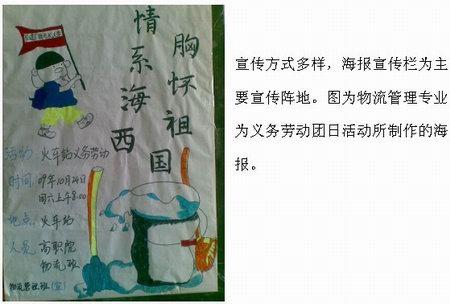 胸怀祖国
情系海西
活动：火车站义务劳动
时间：09年10月24日
周六上午8:00
地点：火车站
人员：高职院
物流班
物流管理班（宣）
宣传方式多样，海报宣传栏为主
要宣传阵地。图为物流管理专业
为义务劳动团日活动所制作的海
报。